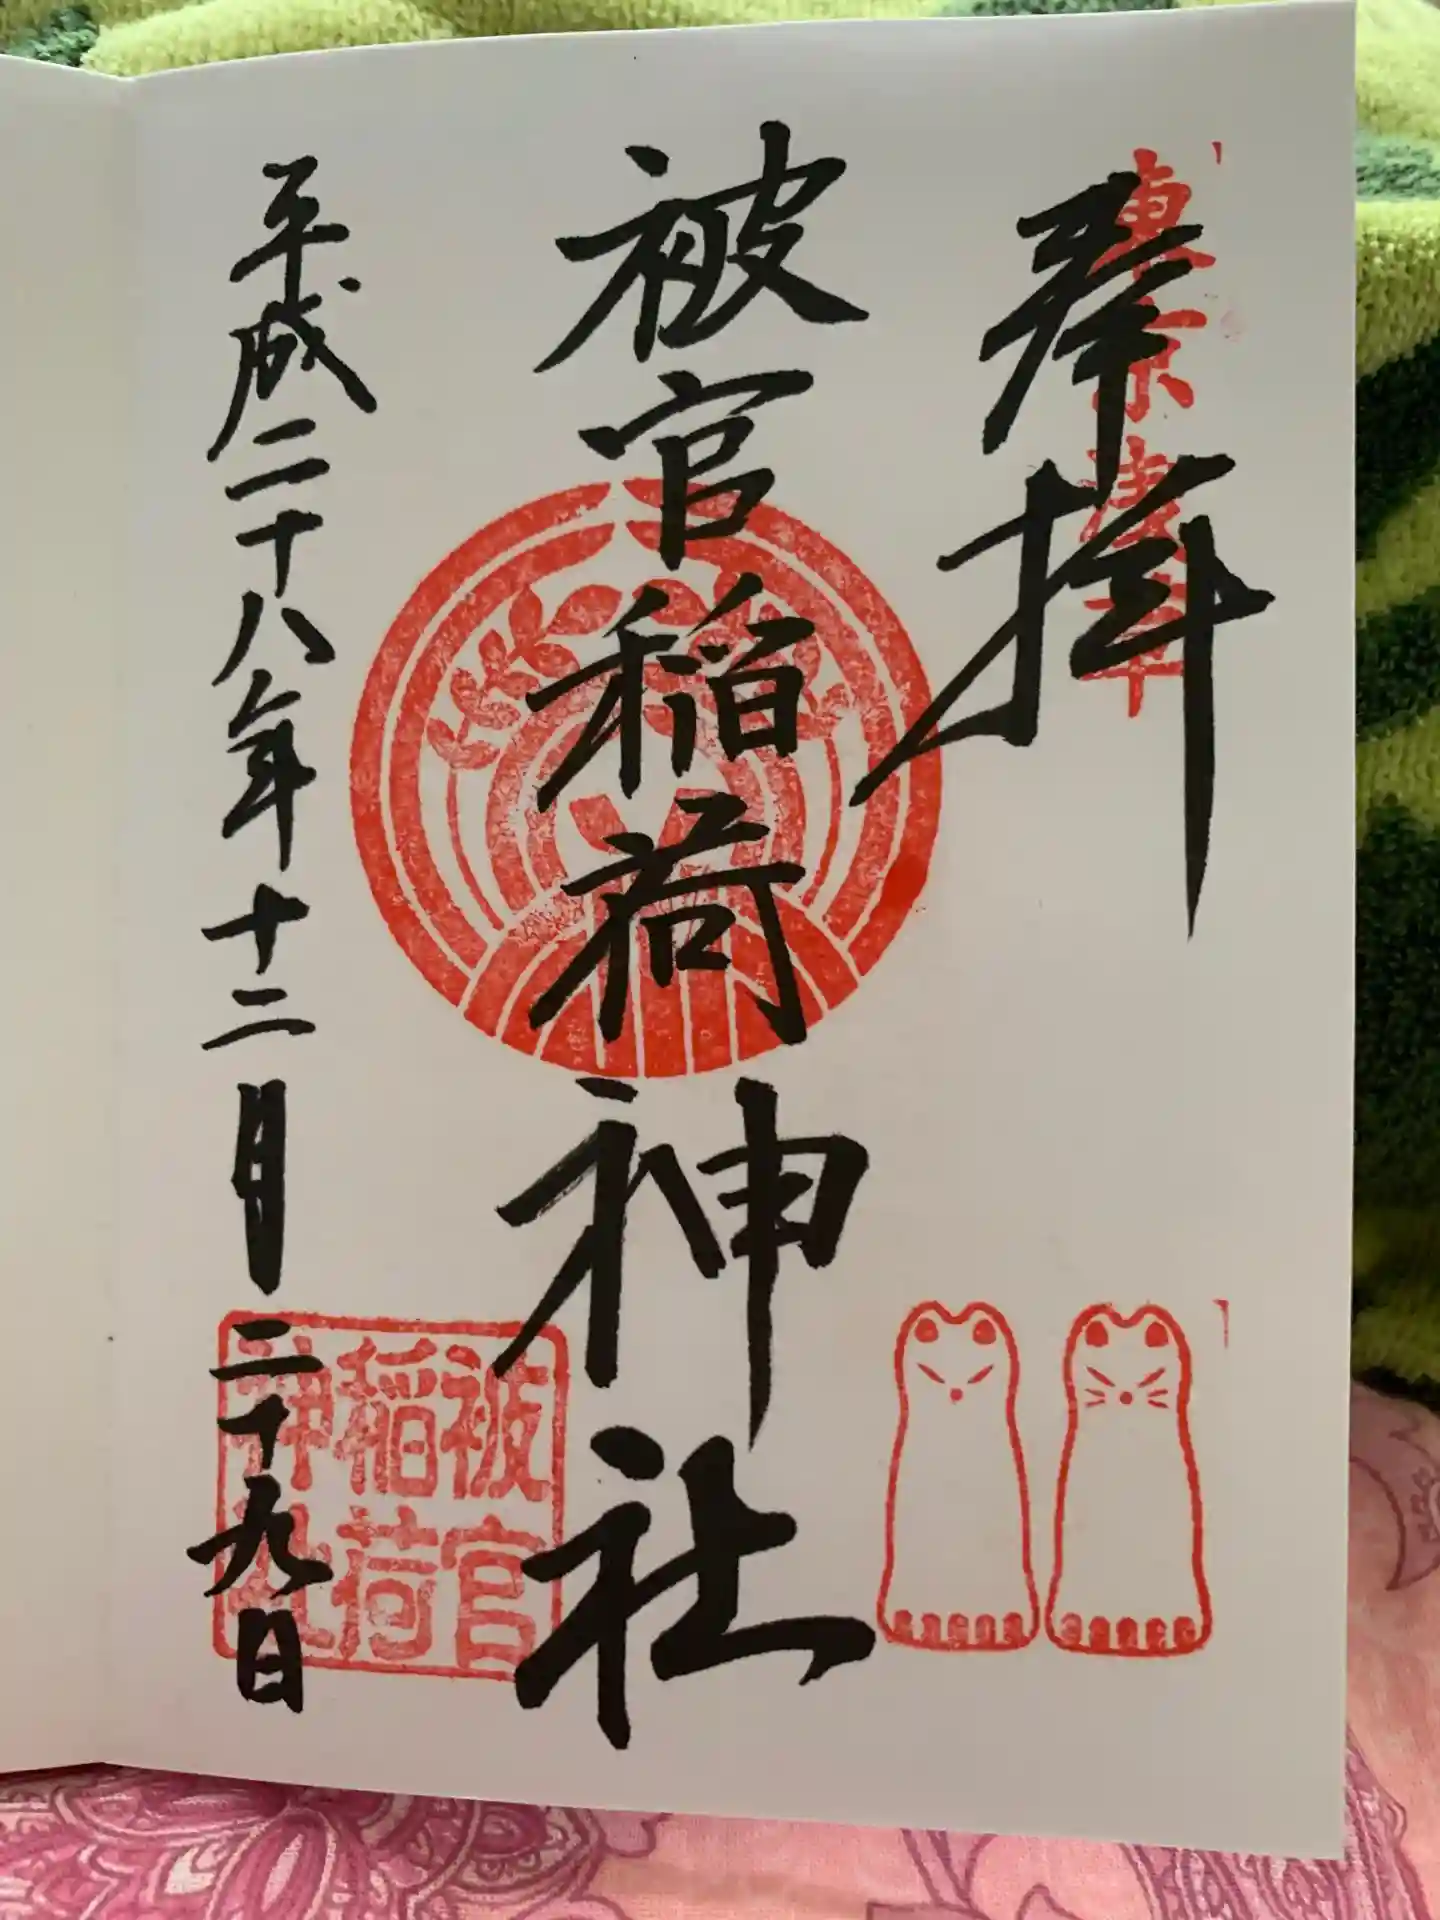 奉拝
東京浅草
被官稲荷神社
平成二十八年十二月二十九日
被官
稲荷
神社